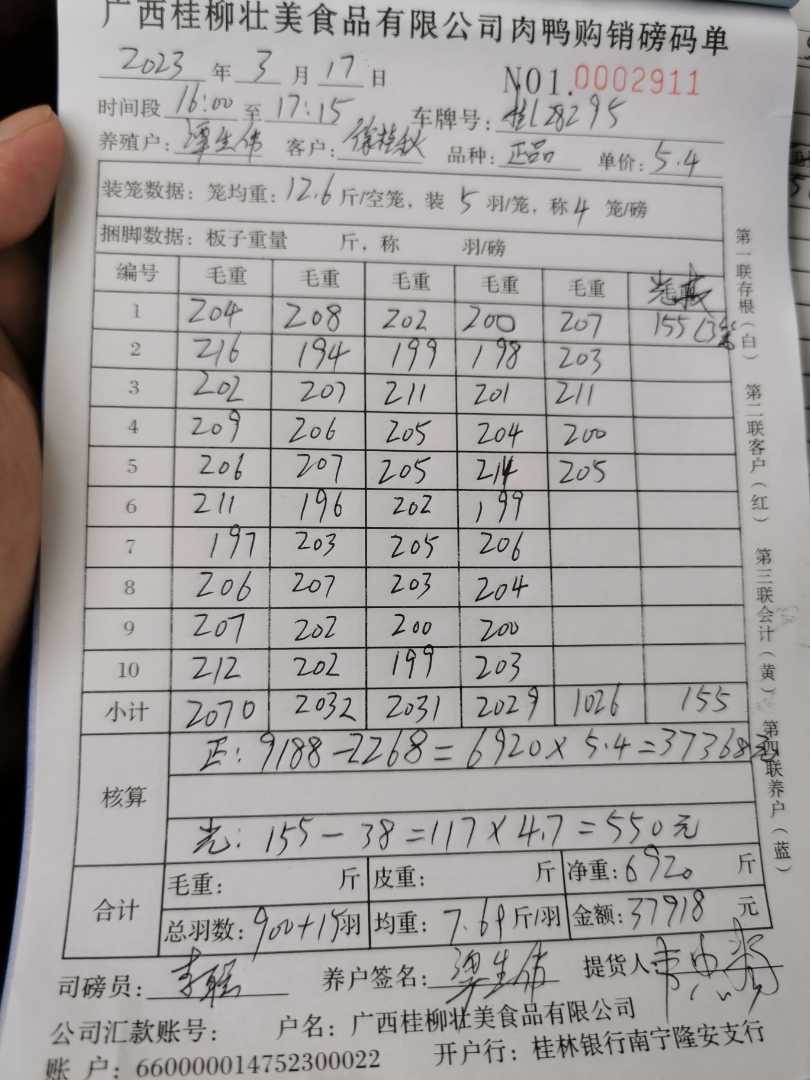 广西桂柳壮美食品有限公司肉鸭购销磅码单
2023 年 3 月 17 日 NO1.0002911
时间段 16:00 至 17:15 车牌号: 桂L28295
养殖户: 生伟 客户: 徐桂秋 品种: 正品 单价: 5.4
装笼数据: 笼均重: 12.6 斤/空笼, 装 5 羽/笼, 称 4 笼/磅
捆脚数据: 板子重量 斤, 称 羽/磅
编号 毛重 毛重 毛重 毛重 毛重
1 204 208 202 200 207 155
2 216 194 199 198 203
3 202 207 211 201 211
4 209 206 205 204 200
5 206 207 205 214 205
6 211 196 202 199
7 197 203 205 206
8 206 207 203 204
9 207 202 200 200
10 212 202 199 203
小计 2070 2032 2031 2029 1026 155
核算
正: 9188-2268=6920×5.4=37368元
光: 155-38=117×4.7=550元
合计
毛重: 斤 皮重: 斤 净重: 6920 斤
总羽数: 900+15羽 均重: 7.69斤/羽 金额: 37918 元
司磅员: 养户签名: 生伟 提货人:
公司汇款账号: 户名: 广西桂柳壮美食品有限公司
账 户: 660000014752300022 开户行: 桂林银行南宁隆安支行
第一联存根(白) 第二联客户(红) 第三联会计(黄) 第四联养户(蓝)